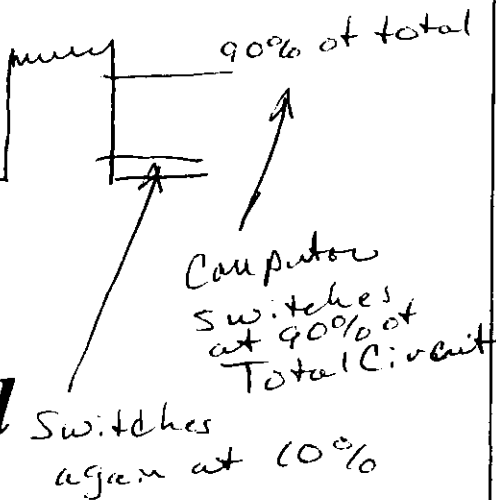 90% of total
Computor
switches
at 90% of
Total Circuit
Switches
again at 10%